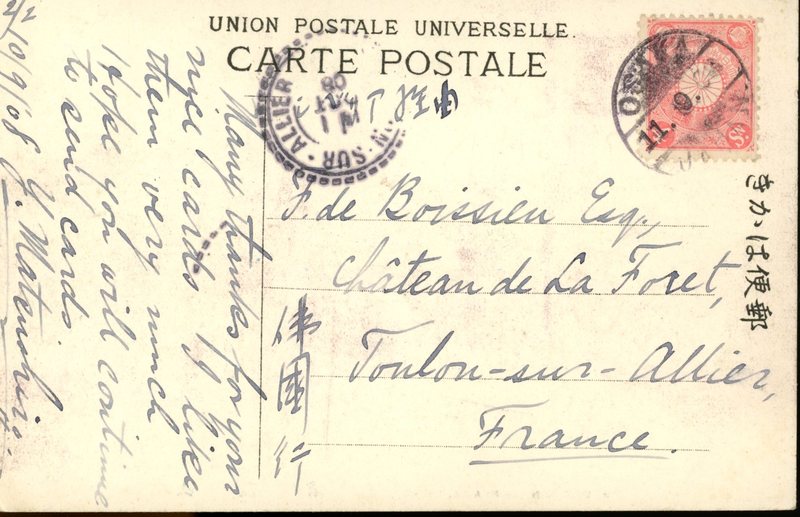 UNION POSTALE UNIVERSELLE.
CARTE POSTALE
OSAKA
11. 9.
SUR · ALLIER
08
F. de Boissieu Esq.,
Château de La Foret,
Toulon-sur-Allier,
France.
佛國行
きかは便郵
Many thanks for your
nice cards. I like
them very much
I hope you will continue
to send cards
Y.
10/9/08